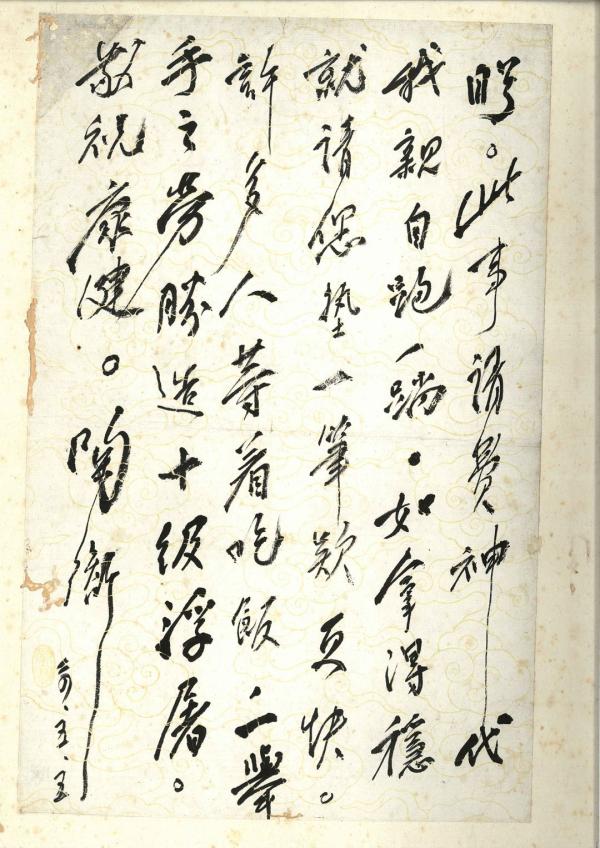 盼。此事請費神代
我親自跑一趟。如拿得穩
就請您墊一筆款更快。
許多人等着吃飯一舉
手之勞勝造十級浮屠。
敬祝康健。陶
五、五